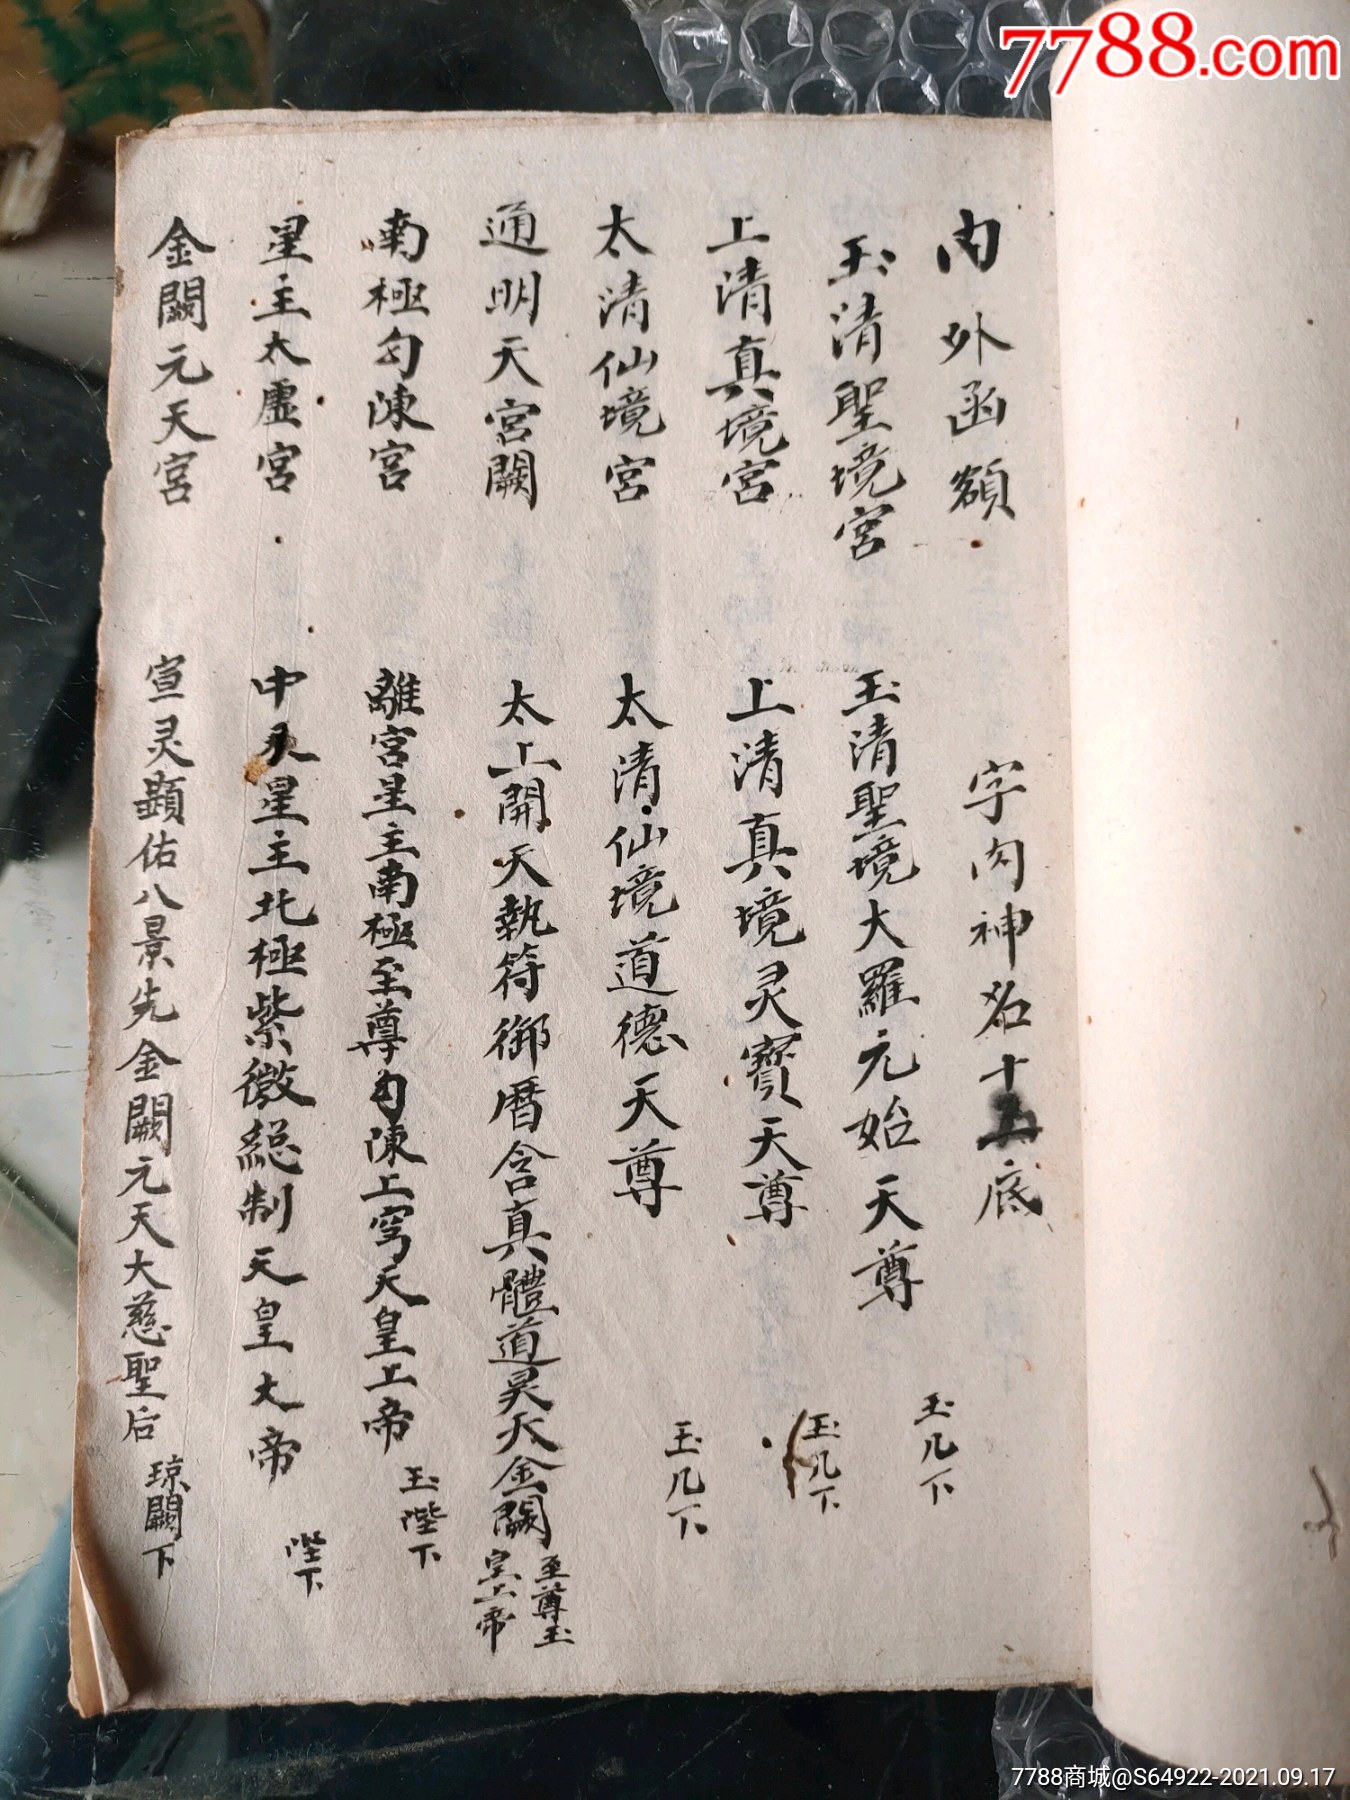 7788.com
内外函額 字内神名十五底
玉清聖境宮 玉清聖境大羅元始天尊 玉几下
上清真境宮 上清真境灵寶天尊 玉几下
太清仙境宮 太清仙境道德天尊 玉几下
通明天宮闕 太上開天執符御曆含真體道昊天金闕至尊玉皇上帝
南極勾陳宮 離宮星主南極至尊勾陳上穹天皇上帝 玉陛下
星主太虛宮 中天星主北極紫微総制天皇大帝 陛下
金闕元天宮 宣灵顯佑八景先金闕元天大慈聖后 琼闕下
7788商城@S64922-2021.09.17